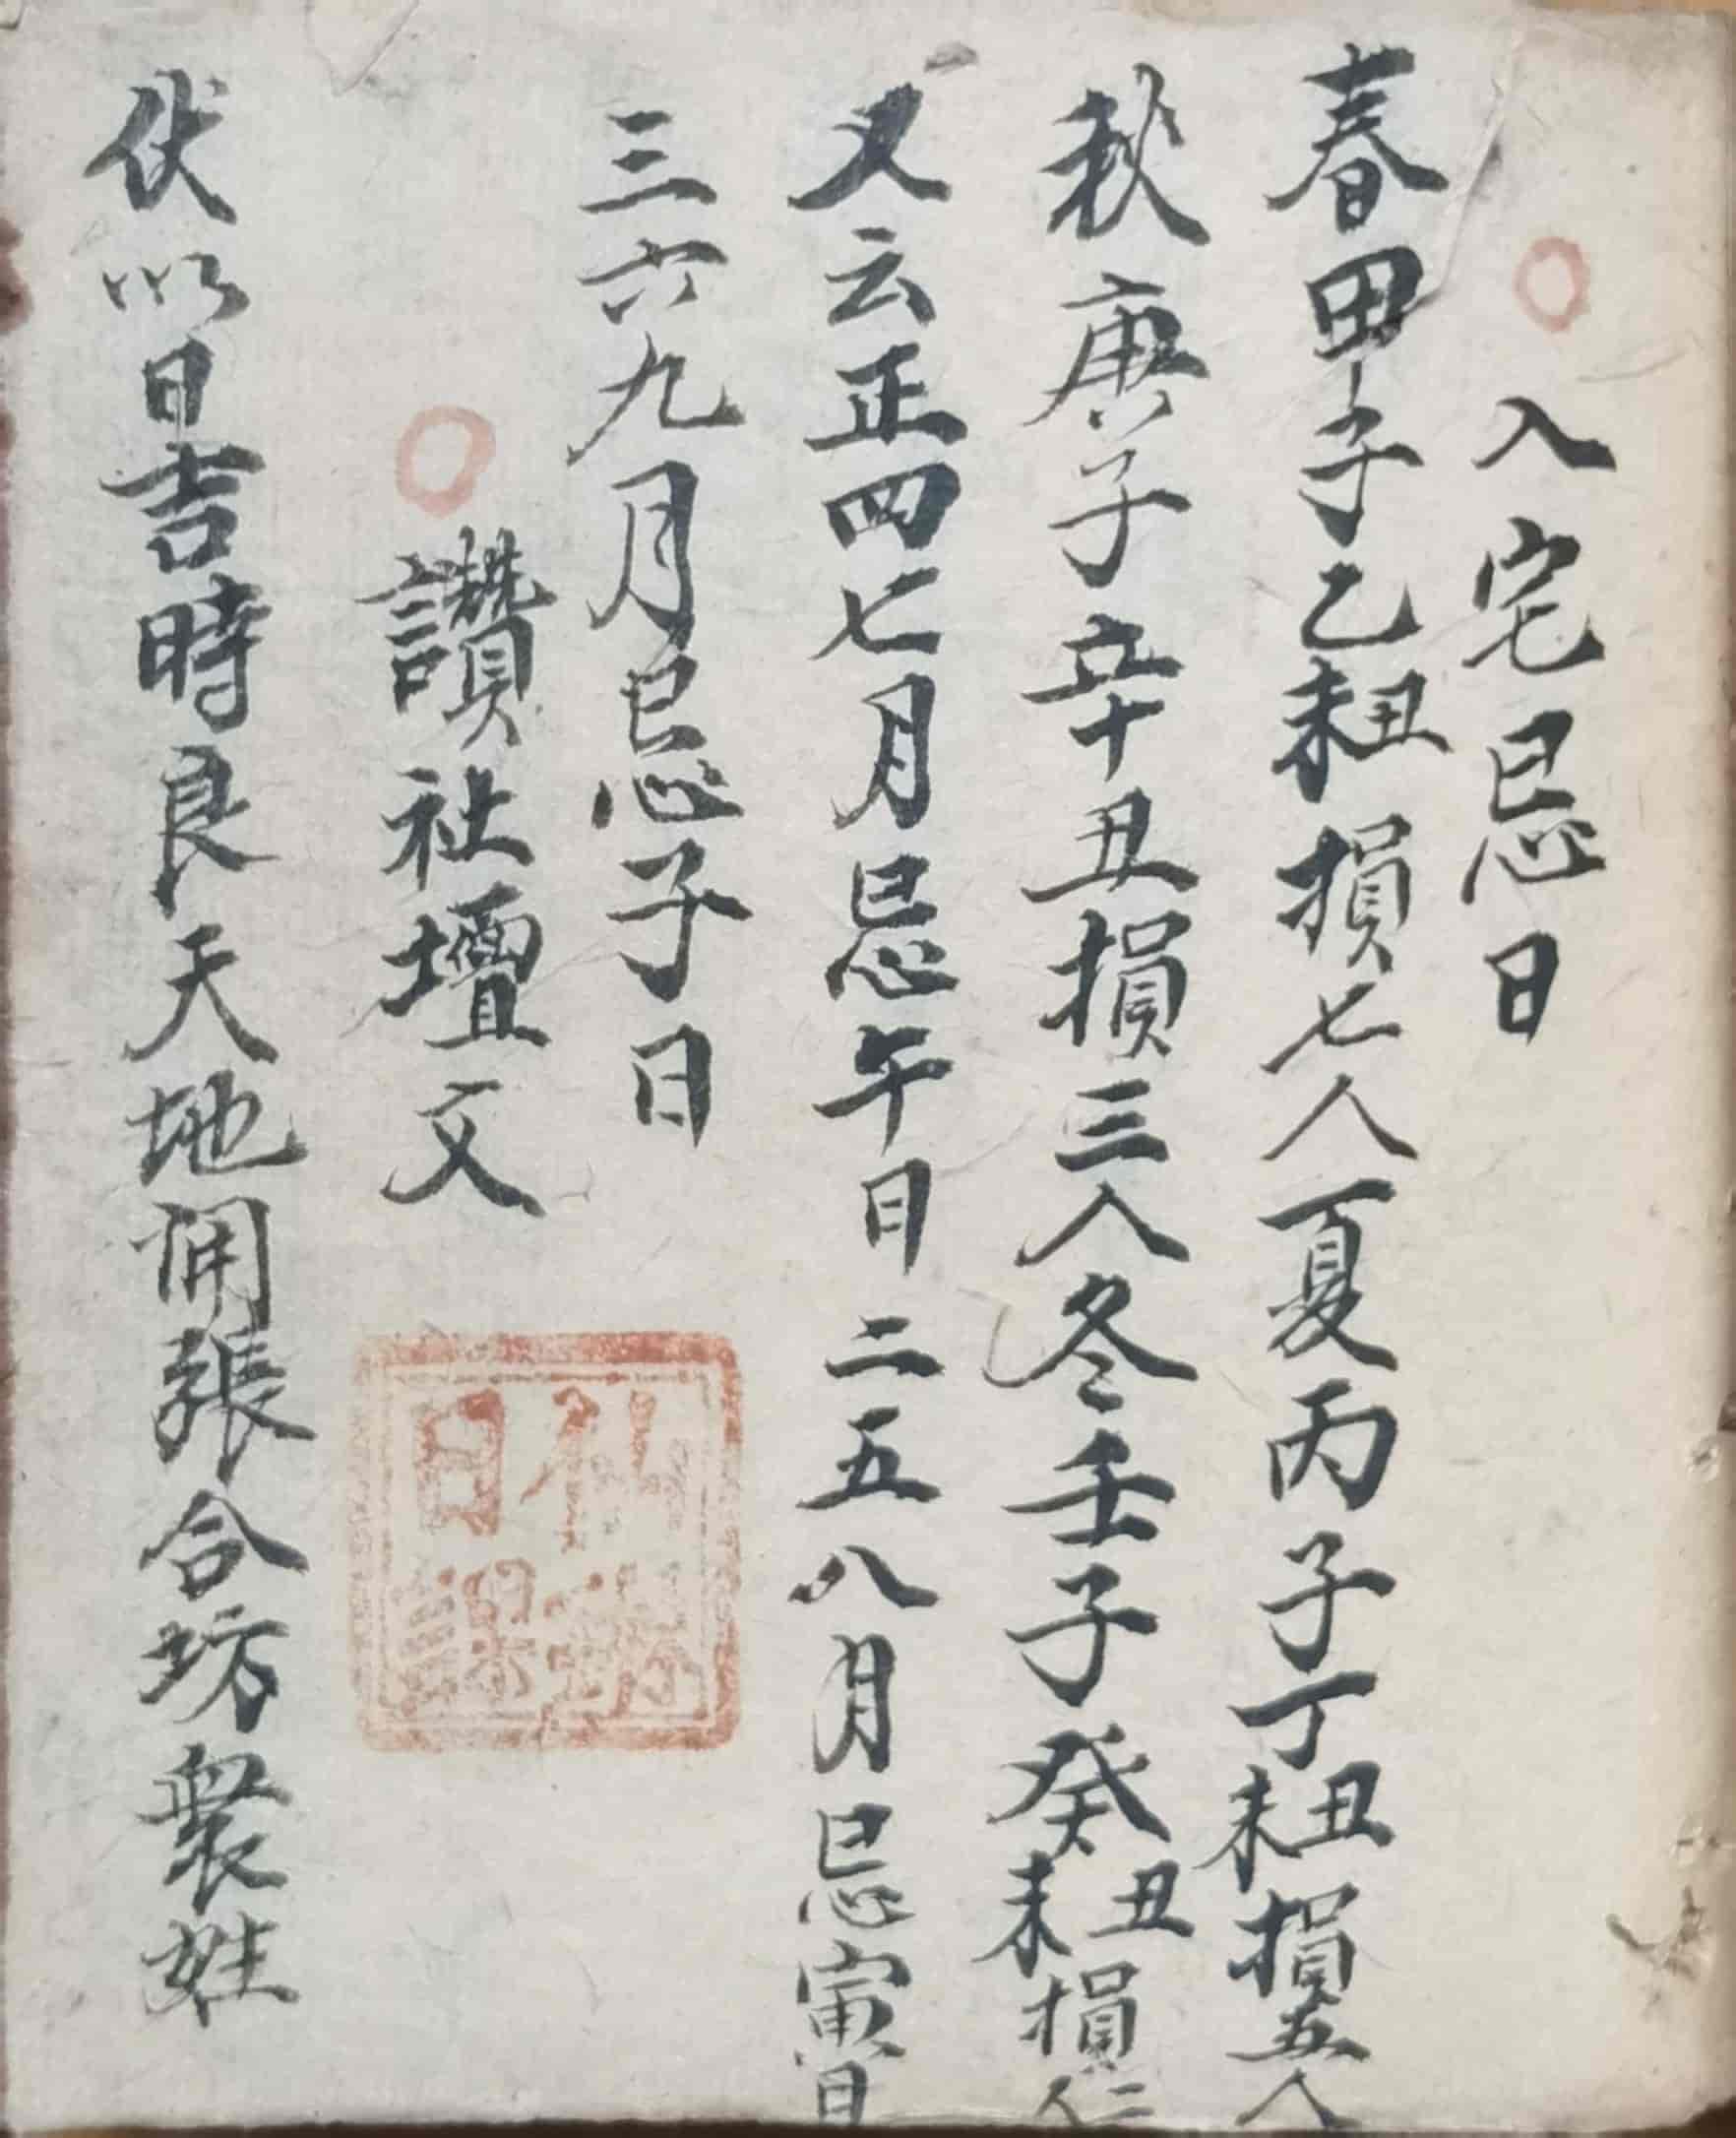 入宅忌日
春甲子乙丑未損七人夏丙子丁丑未損五人
秋庚子辛丑損三人冬壬子癸丑未損二人
又云正四七月忌午日二五八月忌寅日
三六九月忌子日
讚社壇文
伏以日吉時良天地開張合坊衆姓